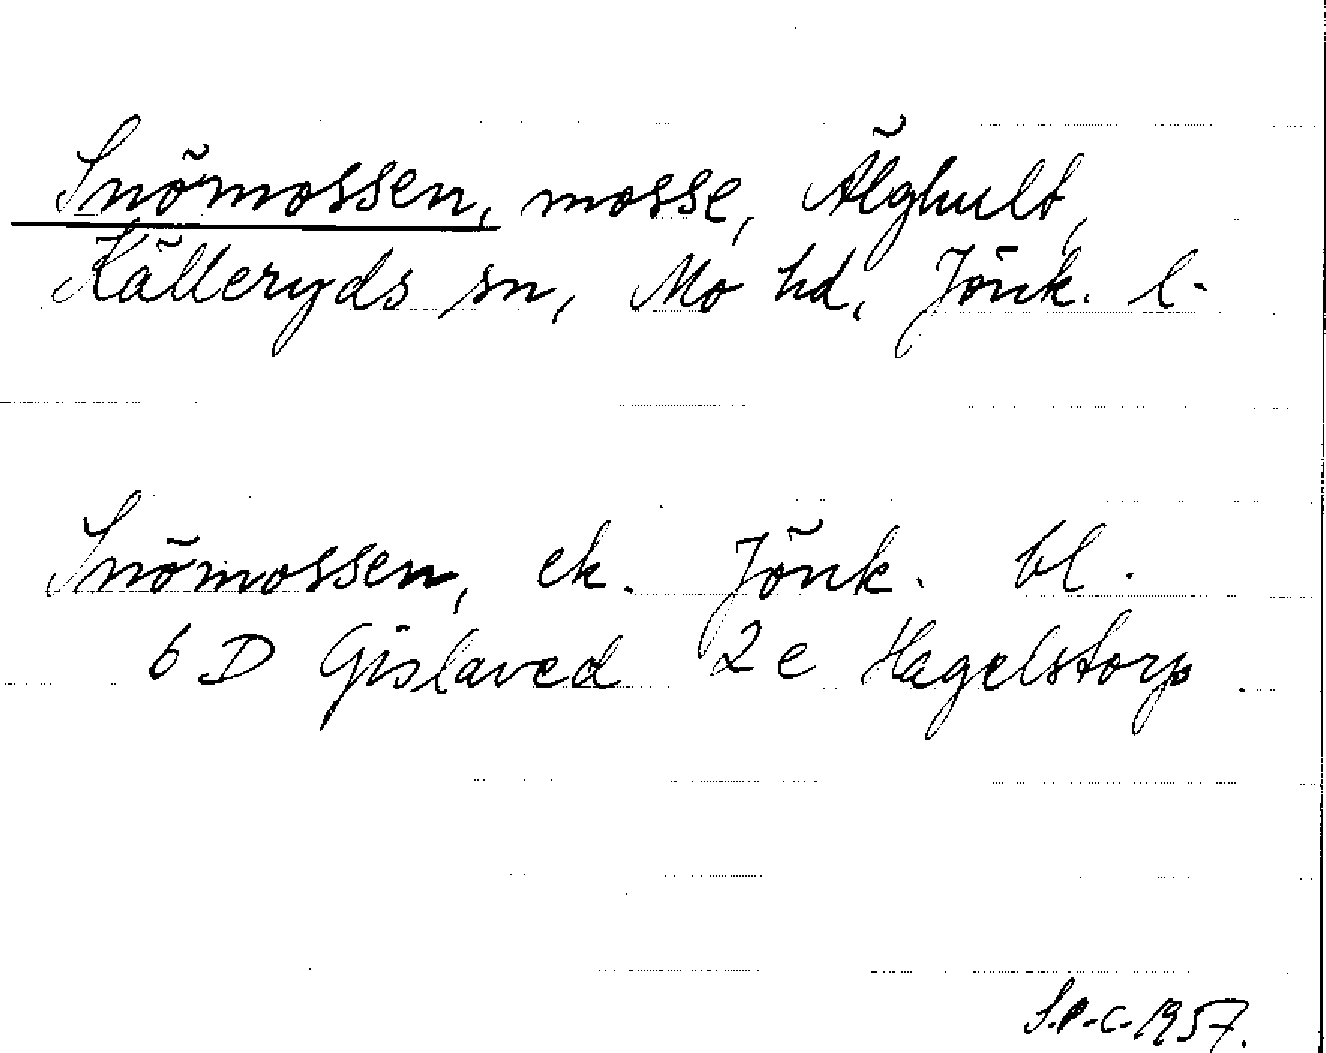 Snömossen, mosse, Älghult,
Källeryds sn, Mo hd, Jönk. l.
Snömossen, ek. Jönk. bl.
6 D Gislaved 2 e Hagelstorp
S.P.C. 1957.